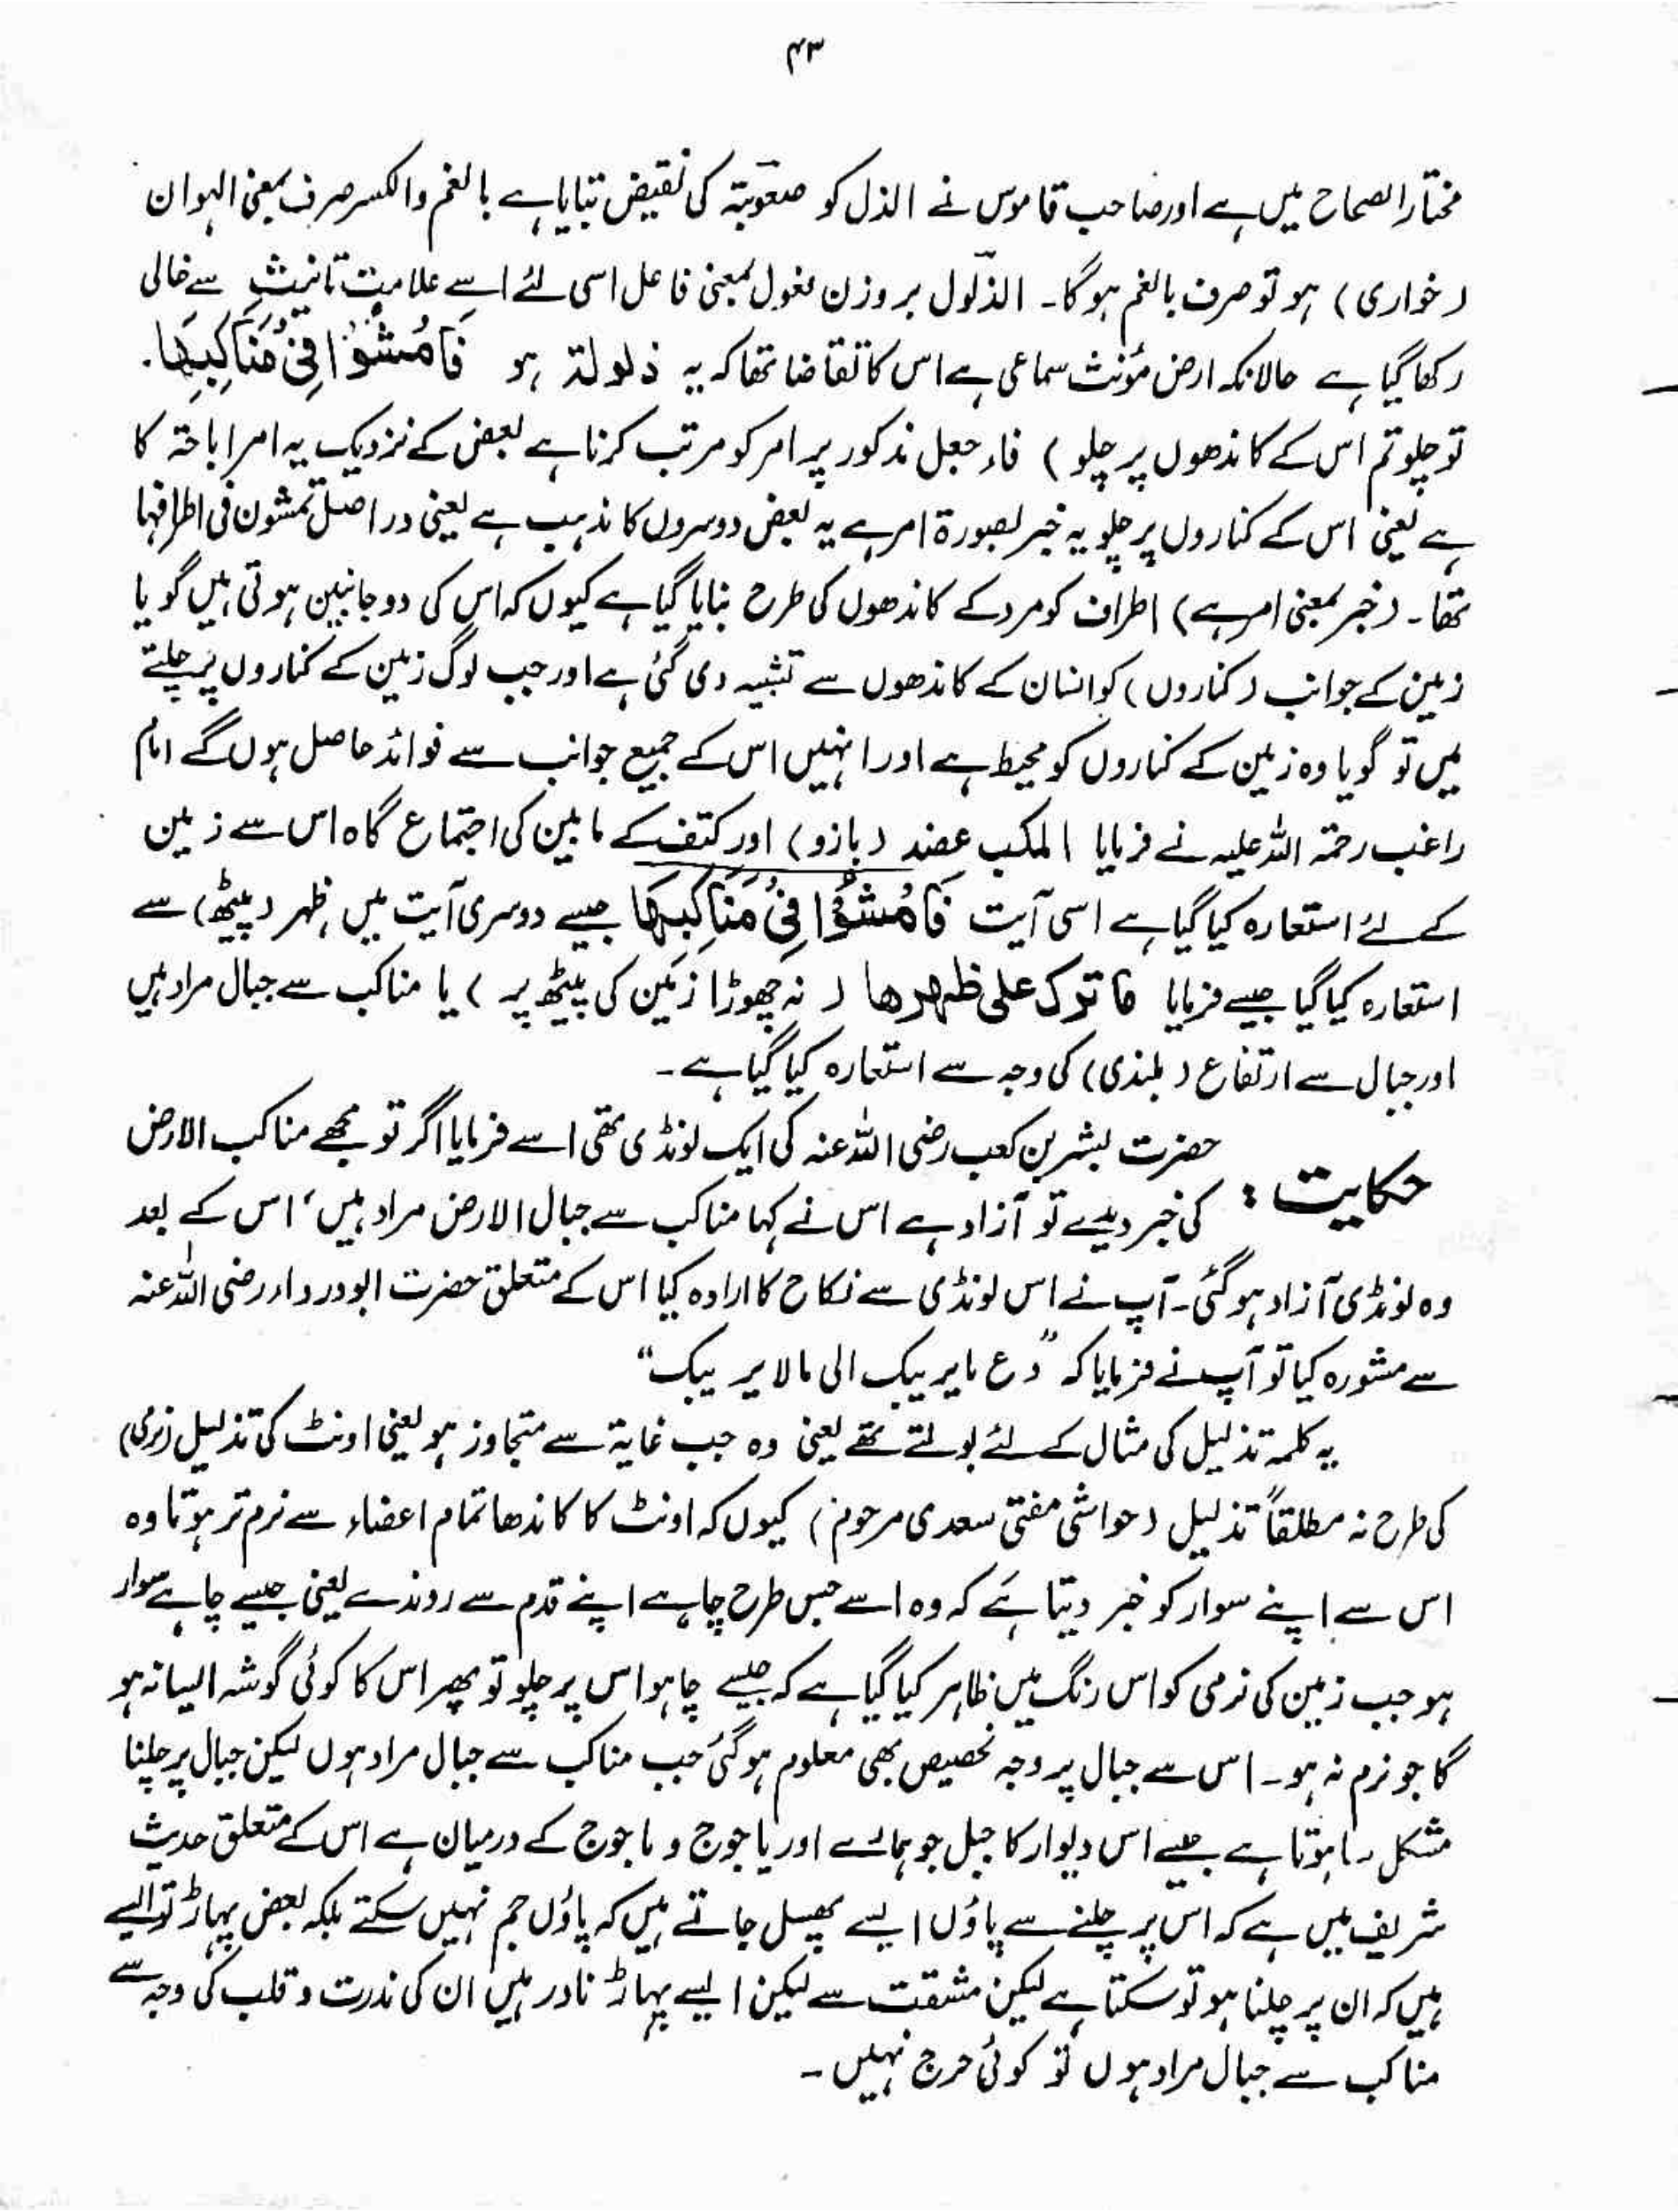 ۴۳
مختار الصحاح میں ہے اور صاحب قاموس نے الذل کو صعوبتہ کی نقیض بتایا ہے بالضم والکسر صرف بمعنی الہوان
(خواری) ہو تو صرف بالضم ہوگا۔ الذلول بروزن فعول بمعنی فاعل اسی لئے اسے علامت تانیث سے خالی
رکھا گیا ہے حالانکہ ارض مؤنث سماعی ہے اس کا تقاضا تھا کہ یہ ذلولۃ ہو فَامْشُوْا فِیْ مَنَاکِبِہَا.
تو چلو تم اس کے کاندھوں پر چلو) فاء جعل مذکور پر امر کو مرتب کرنا ہے بعض کے نزدیک یہ امر اباحتہ کا
ہے یعنی اس کے کناروں پر چلو یہ خبر بصورۃ امر ہے یہ بعض دوسروں کا مذہب ہے یعنی دراصل تمشون فی اطرافہا
تھا۔ (خبر بمعنی امر ہے) اطراف کو مرد کے کاندھوں کی طرح بنایا گیا ہے کیوں کہ اس کی دو جانبین ہوتی ہیں گویا
زمین کے جوانب (کناروں) کو انسان کے کاندھوں سے تشبیہ دی گئی ہے اور جب لوگ زمین کے کناروں پر چلتے
ہیں تو گویا وہ زمین کے کناروں کو محیط ہے اور انہیں اس کے جمیع جوانب سے فوائد حاصل ہوں گے امام
راغب رحمۃ اللہ علیہ نے فرمایا المکب عضد (بازو) اور کتف کے مابین کی اجتماع گاہ اس سے زمین
کے لئے استعارہ کیا گیا ہے اسی آیت فَامْشُوْا فِیْ مَنَاکِبِہَا جیسے دوسری آیت میں ظہر (پیٹھ) سے
استعارہ کیا گیا جیسے فرمایا ما ترک علی ظہرھا (نہ چھوڑا زمین کی پیٹھ پر) یا مناکب سے جبال مراد ہیں
اور جبال سے ارتفاع (بلندی) کی وجہ سے استعارہ کیا گیا ہے۔
حکایت: حضرت بشر بن کعب رضی اللہ عنہ کی ایک لونڈی تھی اسے فرمایا اگر تو مجھے مناکب الارض
کی خبر دیدے تو آزاد ہے اس نے کہا مناکب سے جبال الارض مراد ہیں، اس کے بعد
وہ لونڈی آزاد ہوگئی۔ آپ نے اس لونڈی سے نکاح کا ارادہ کیا اس کے متعلق حضرت ابودرداء رضی اللہ عنہ
سے مشورہ کیا تو آپ نے فرمایا کہ "دع ما یریبک الی مالا یریبک"
یہ کلمہ تذلیل کی مثال کے لئے بولتے تھے یعنی وہ جب غایۃ سے متجاوز ہو یعنی اونٹ کی تذلیل (نرمی)
کی طرح نہ مطلقاً تذلیل (حواشی مفتی سعدی مرحوم) کیوں کہ اونٹ کا کاندھا تمام اعضاء سے نرم تر ہوتا وہ
اس سے اپنے سوار کو خبر دیتا ہے کہ وہ اسے جس طرح چاہے اپنے قدم سے روندے یعنی جیسے چاہے سوار
ہو جب زمین کی نرمی کو اس رنگ میں ظاہر کیا گیا ہے کہ جیسے چاہو اس پر چلو تو پھر اس کا کوئی گوشہ ایسا نہ ہو
گا جو نرم نہ ہو۔ اس سے جبال پر وجہ تخصیص بھی معلوم ہوگئی جب مناکب سے جبال مراد ہوں لیکن جبال پر چلنا
مشکل سا ہوتا ہے جیسے اس دیوار کا جبل جو ہمارے اور یاجوج و ماجوج کے درمیان ہے اس کے متعلق حدیث
شریف میں ہے کہ اس پر چلنے سے پاؤں ایسے پھسل جاتے ہیں کہ پاؤں جم نہیں سکتے بلکہ بعض پہاڑ تو ایسے
ہیں کہ ان پر چلنا ہو تو سکتا ہے لیکن مشقت سے لیکن ایسے پہاڑ نادر ہیں ان کی ندرت و قلب کی وجہ سے
مناکب سے جبال مراد ہوں تو کوئی حرج نہیں۔